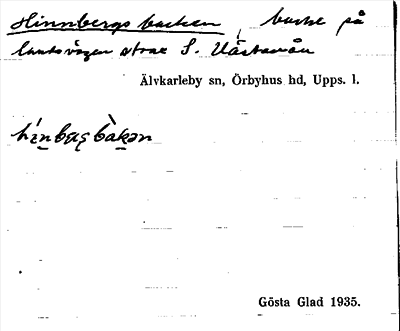 Hinnbergs backen, backe på
landsvägen strax S. Västanån
Älvkarleby sn, Örbyhus hd, Upps. l.
hínbærs bàkən
Gösta Glad 1935.